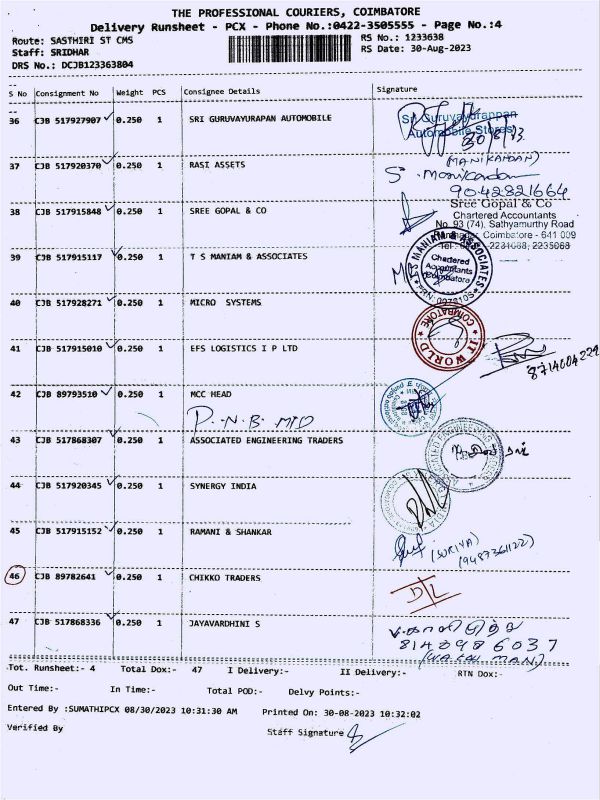 THE PROFESSIONAL COURIERS, COIMBATORE
Delivery Runsheet - PCX - Phone No.:0422-3505555 - Page No.:4
Route: SASTHIRI ST CMS
RS No.: 1233638
Staff: SRIDHAR
RS Date: 30-Aug-2023
DRS No.: DCJB123363804
S No Consignment No Weight PCS Consignee Details Signature
36 CJB 517927907 0.250 1 SRI GURUVAYURAPAN AUTOMOBILE
Sri Guruvayurappan
Automobile Stores
30/8/23
37 CJB 517920370 0.250 1 RASI ASSETS
(MANIKANDAN)
S. Manikandan
9042821664
38 CJB 517915848 0.250 1 SREE GOPAL & CO
Sree Gopal & Co
Chartered Accountants
No. 93 (74), Sathyamurthy Road
Coimbatore - 641 009
2235063
39 CJB 517915117 0.250 1 T S MANIAM & ASSOCIATES
T S MANIAM & ASSOCIATES
Chartered
Accountants
Coimbatore
40 CJB 517928271 0.250 1 MICRO SYSTEMS
COIMBATORE
IT WORLD
41 CJB 517915010 0.250 1 EFS LOGISTICS I P LTD
8714604229
42 CJB 89793510 0.250 1 MCC HEAD
P.N.B. MTD
43 CJB 517868307 0.250 1 ASSOCIATED ENGINEERING TRADERS
44 CJB 517920345 0.250 1 SYNERGY INDIA
45 CJB 517915152 0.250 1 RAMANI & SHANKAR
(SURIYA)
(9487361122)
46 CJB 89782641 0.250 1 CHIKKO TRADERS
D/L
47 CJB 517868336 0.250 1 JAYAVARDHINI S
8148986037
Tot. Runsheet:- 4 Total Dox:- 47 I Delivery:- II Delivery:- RTN Dox:-
Out Time:- In Time:- Total POD:- Delvy Points:-
Entered By :SUMATHIPCX 08/30/2023 10:31:30 AM Printed On: 30-08-2023 10:32:02
Verified By Staff Signature